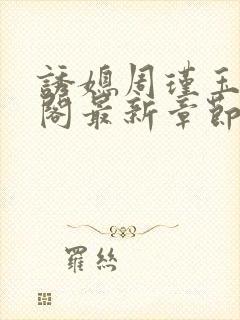 誘媳周瑾玉
閣最新章節
羅絲